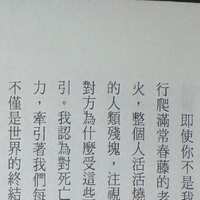 即使你不是我
行爬滿常春藤的老
火，整個人活活燒
的人類殘塊，注視
對方為什麼受這些
引。我認為對死亡
力，牽引著我們每
不僅是世界的終結